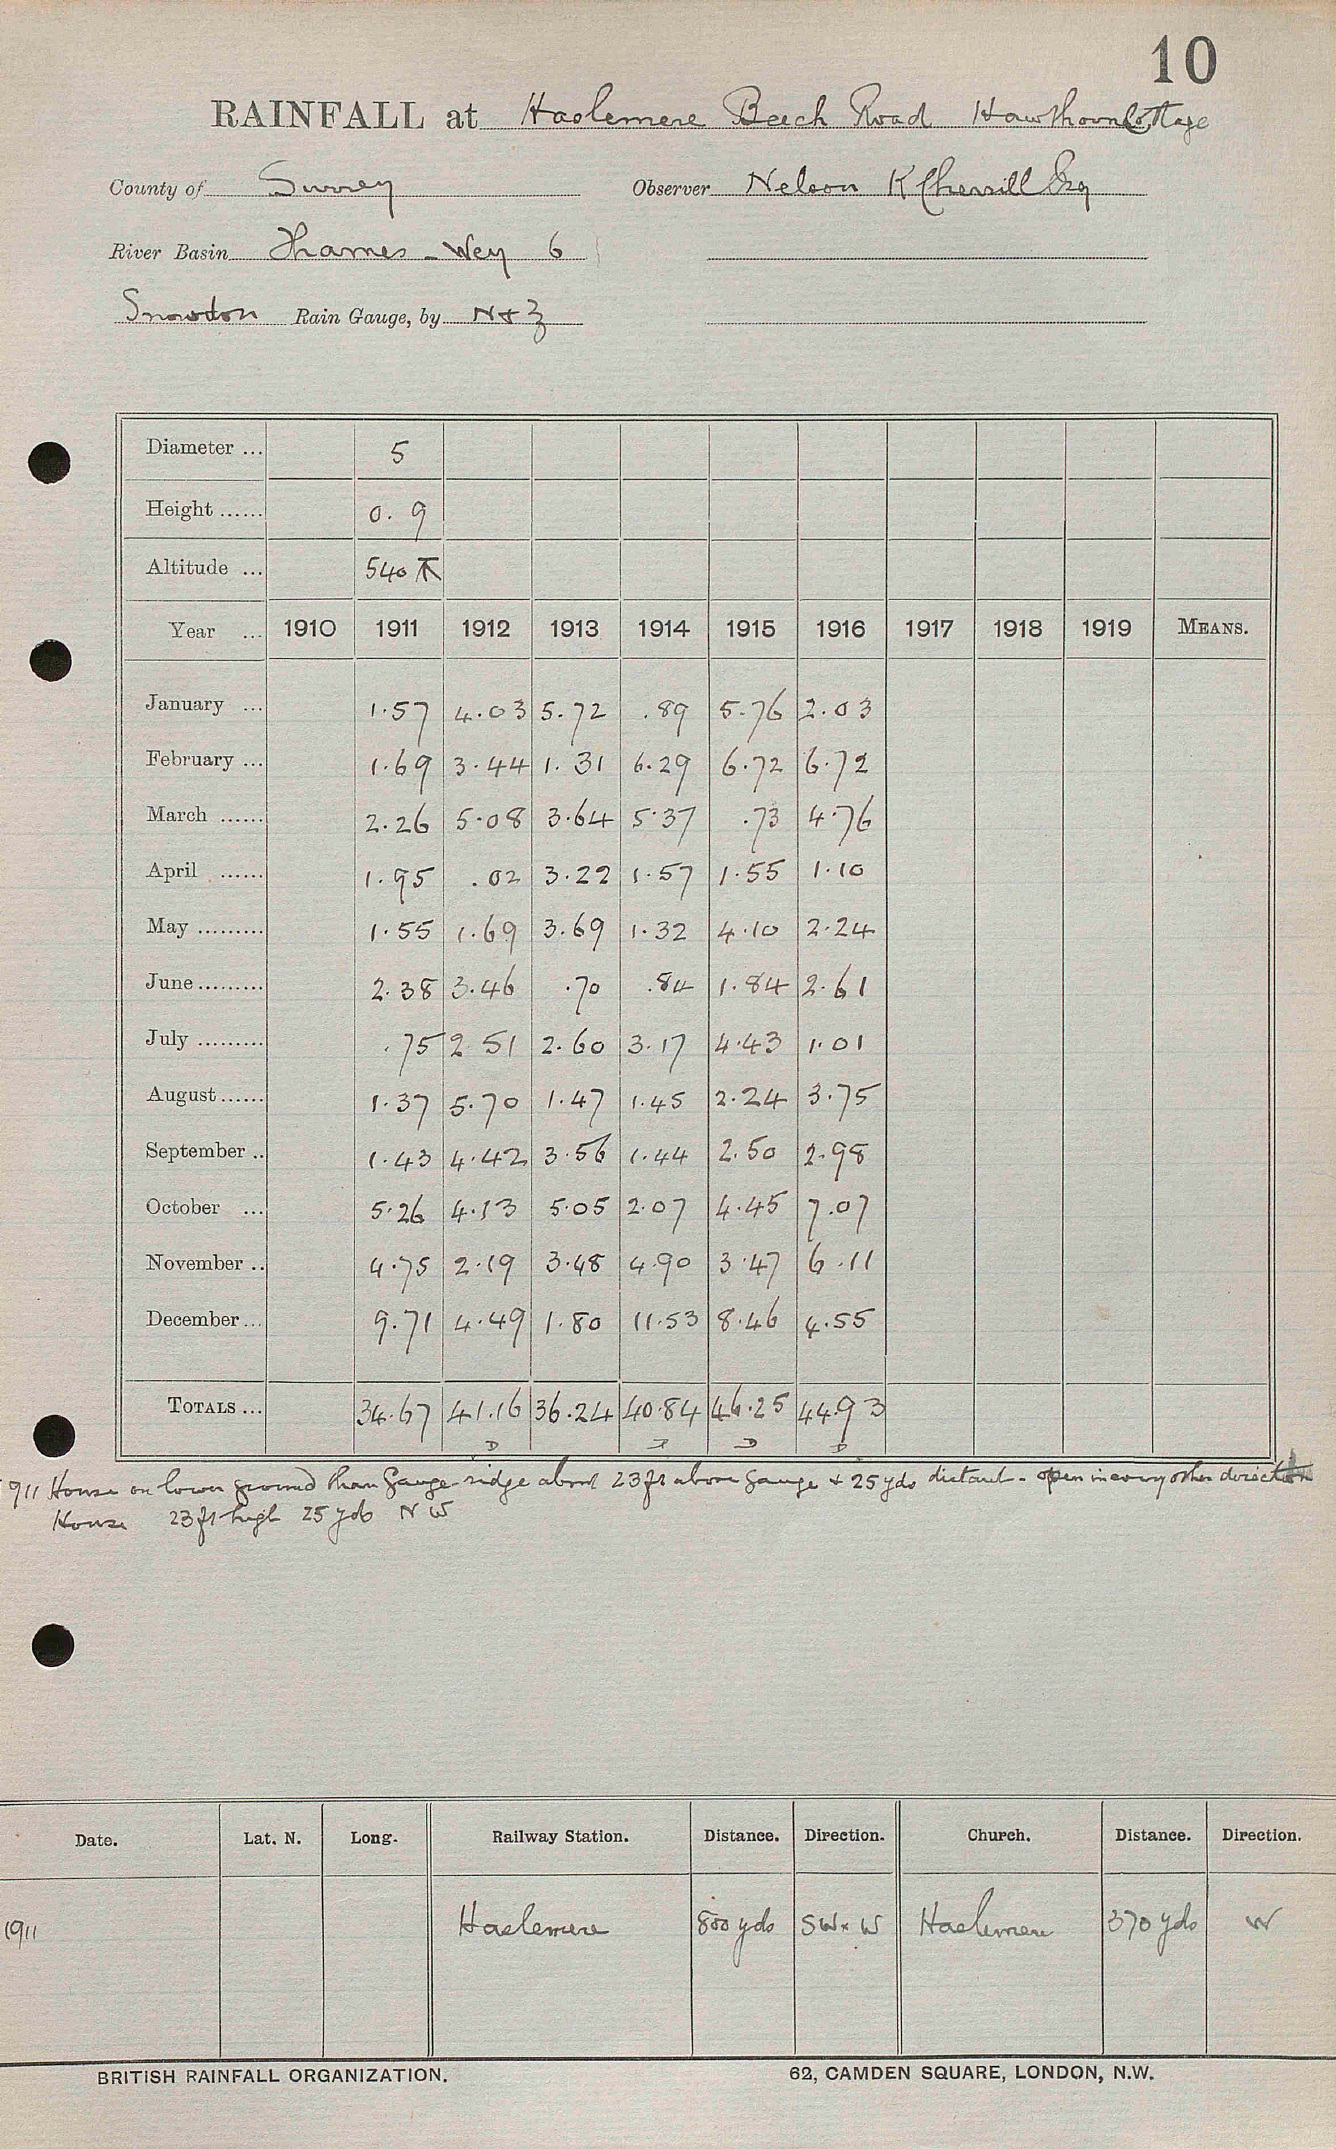 10
RAINFALL at Haslemere Beech Road Hawthorn Cottage
County of Surrey Observer Nelson K Cherrill Esq
River Basin Thames - Wey 6
Snowdon Rain Gauge, by N & Z
Diameter ... 5
Height ...... 0. 9
Altitude ... 540
Year ... 1910 1911 1912 1913 1914 1915 1916 1917 1918 1919 MEANS.
January ... 1.57 4.03 5.72 .89 5.76 2.03
February ... 1.69 3.44 1.31 6.29 6.72 6.72
March ...... 2.26 5.08 3.64 5.37 .73 4.76
April ...... 1.95 .02 3.22 1.57 1.55 1.10
May ......... 1.55 1.69 3.69 1.32 4.10 2.24
June ......... 2.38 3.46 .70 .84 1.84 2.61
July ......... .75 2 51 2.60 3.17 4.43 1.01
August ...... 1.37 5.70 1.47 1.45 2.24 3.75
September .. 1.43 4.42 3.56 1.44 2.50 2.98
October ... 5.26 4.13 5.05 2.07 4.45 7.07
November .. 4.75 2.19 3.48 4.90 3.47 6.11
December ... 9.71 4.49 1.80 11.53 8.46 4.55
TOTALS ... 34.67 41.16 36.24 40.84 46.25 44.93
D D D D
1911 House on lower ground than gauge - ridge about 23 ft above gauge & 25 yds distant - open in every other direction
House 23 ft high 25 yds N W
Date. Lat. N. Long. Railway Station. Distance. Direction. Church. Distance. Direction.
1911 Haslemere 800 yds SW x W Haslemere 370 yds W
BRITISH RAINFALL ORGANIZATION. 62, CAMDEN SQUARE, LONDON, N.W.